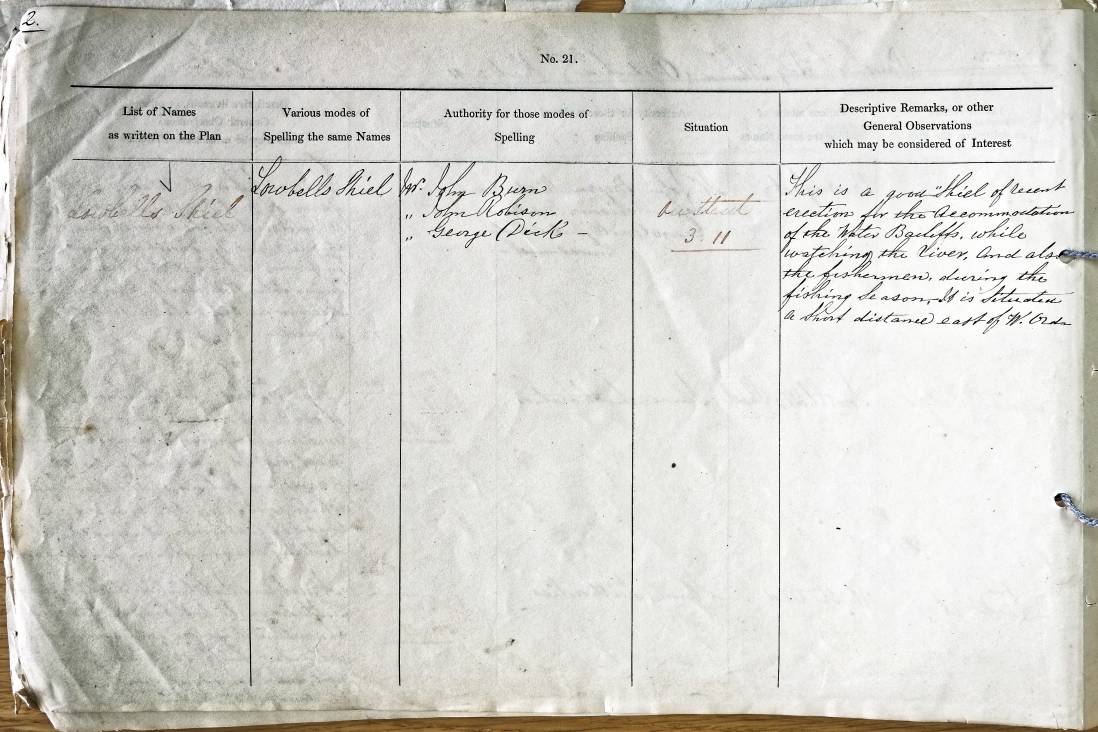 2.
No. 21.
List of Names
as written on the Plan
Various modes of
Spelling the same Names
Authority for those modes of
Spelling
Situation
Descriptive Remarks, or other
General Observations
which may be considered of Interest
Shiel
Lowbells Shiel
Mr. John Burn
„ John Robison
„ George Dick –
3 11
This is a good "Shiel of recent
erection for the Accommodation
of the Water Bailiffs, while
watching the River, and also
the fishermen, during the
fishing Season, It is Situated
a Short distance east of W. Ord